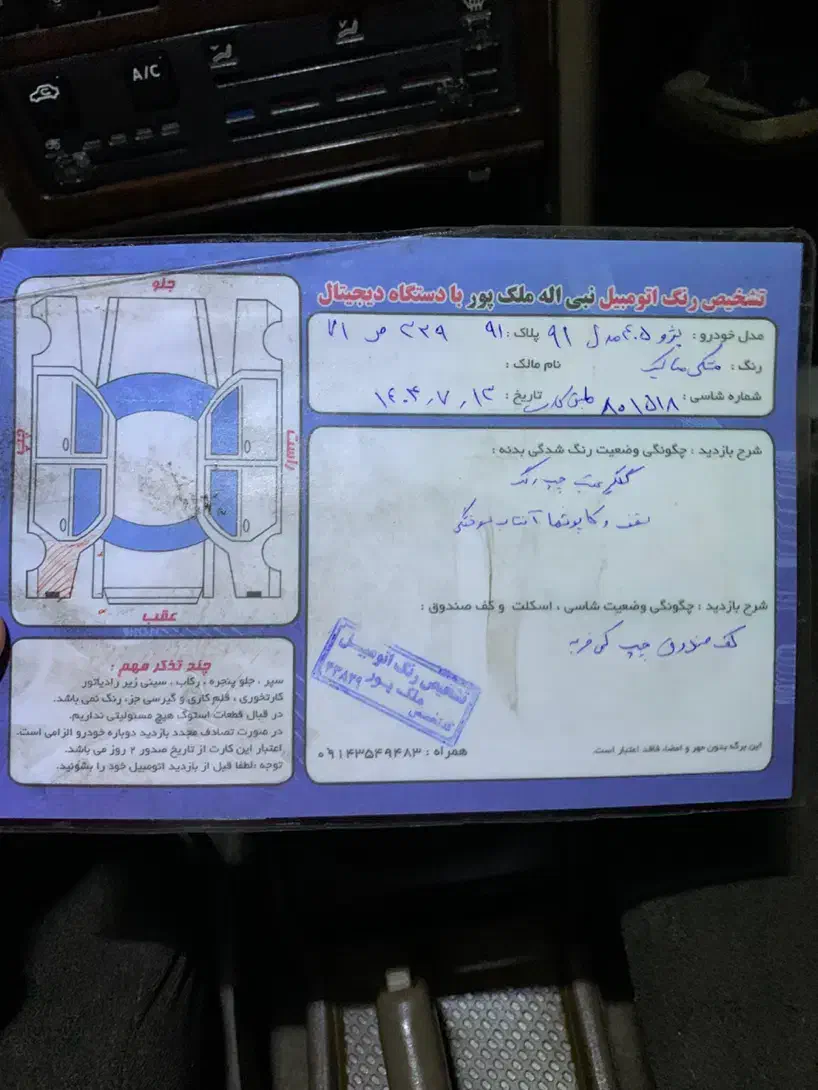 A/C
تشخیص رنگ اتومبیل نبی اله ملک پور با دستگاه دیجیتال
مدل خودرو : پژو ۴۰۵ مدل ۹۱ پلاک : ۹۱ ۲۳۹ ص ۲۱
رنگ : مشکی متالیک نام مالک :
شماره شاسی : ۸۰۱۵۱۸ طبق کارت تاریخ : ۱۴۰۴٫۷٫۱۳
شرح بازدید : چگونگی وضعیت رنگ شدگی بدنه :
گلگیر عقب چپ رنگ
سقف و کاپوتها آفتاب سوختگی
شرح بازدید : چگونگی وضعیت شاسی ، اسکلت و کف صندوق :
کف صندوق چپ کمی ضربه
تشخیص رنگ اتومبیل
ملک پور
این برگه بدون مهر و امضاء فاقد اعتبار است.
همراه : ۰۹۱۴۳۵۴۹۴۸۳
جلو
چپ
راست
عقب
چند تذکر مهم :
سپر ، جلو پنجره ، رکاب ، سینی زیر رادیاتور
کارتخوری ، قلم کاری و گیرسی جزء رنگ نمی باشد.
در قبال قطعات استوک هیچ مسئولیتی نداریم.
در صورت تصادف مجدد بازدید دوباره خودرو الزامی است.
اعتبار این کارت از تاریخ صدور ۲ روز می باشد.
توجه :لطفا قبل از بازدید اتومبیل خود را بشوئید.